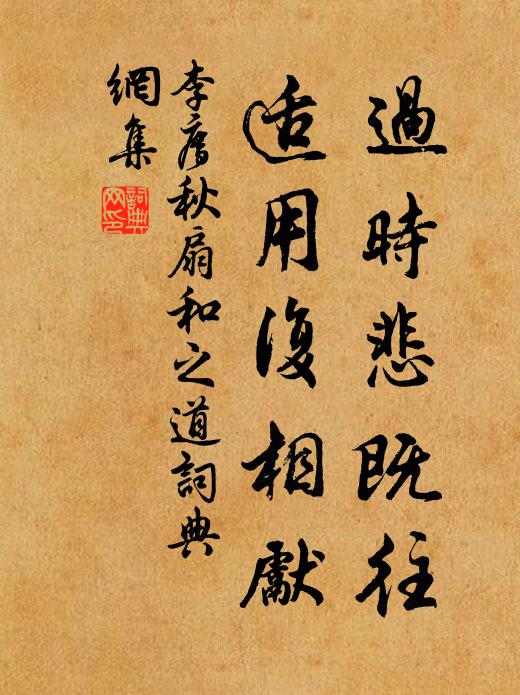 過時悲既往
适用復相獻
李廌秋扇和之道詞典
網集
詞典網印